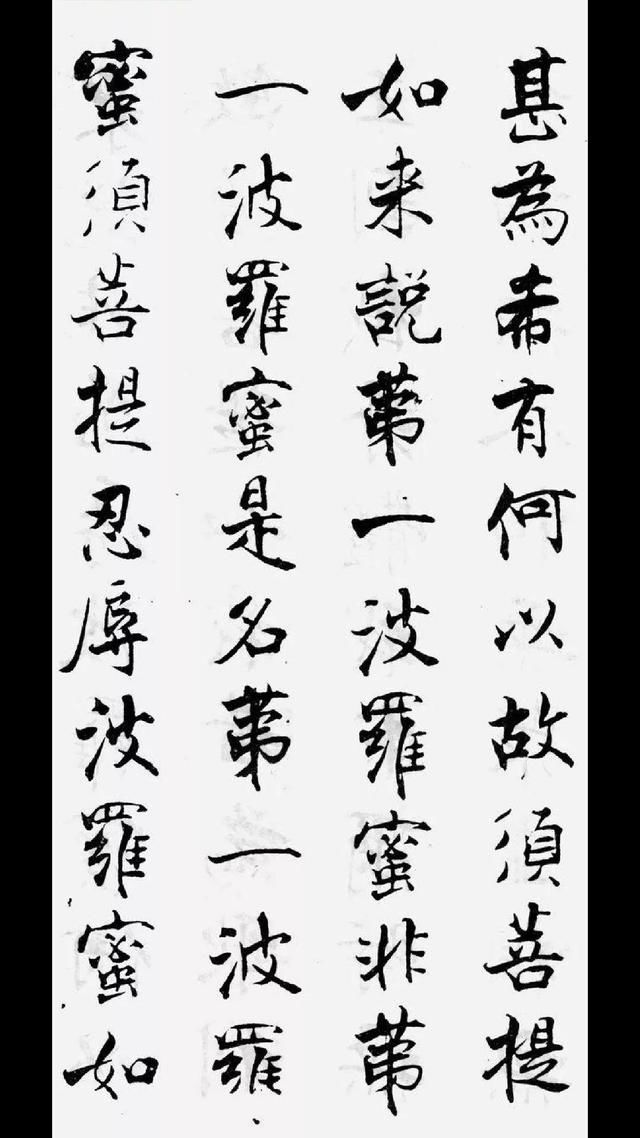 甚為希有何以故須菩提
如来說苐一波羅蜜非苐
一波羅蜜是名苐一波羅
蜜須菩提忍辱波羅蜜如